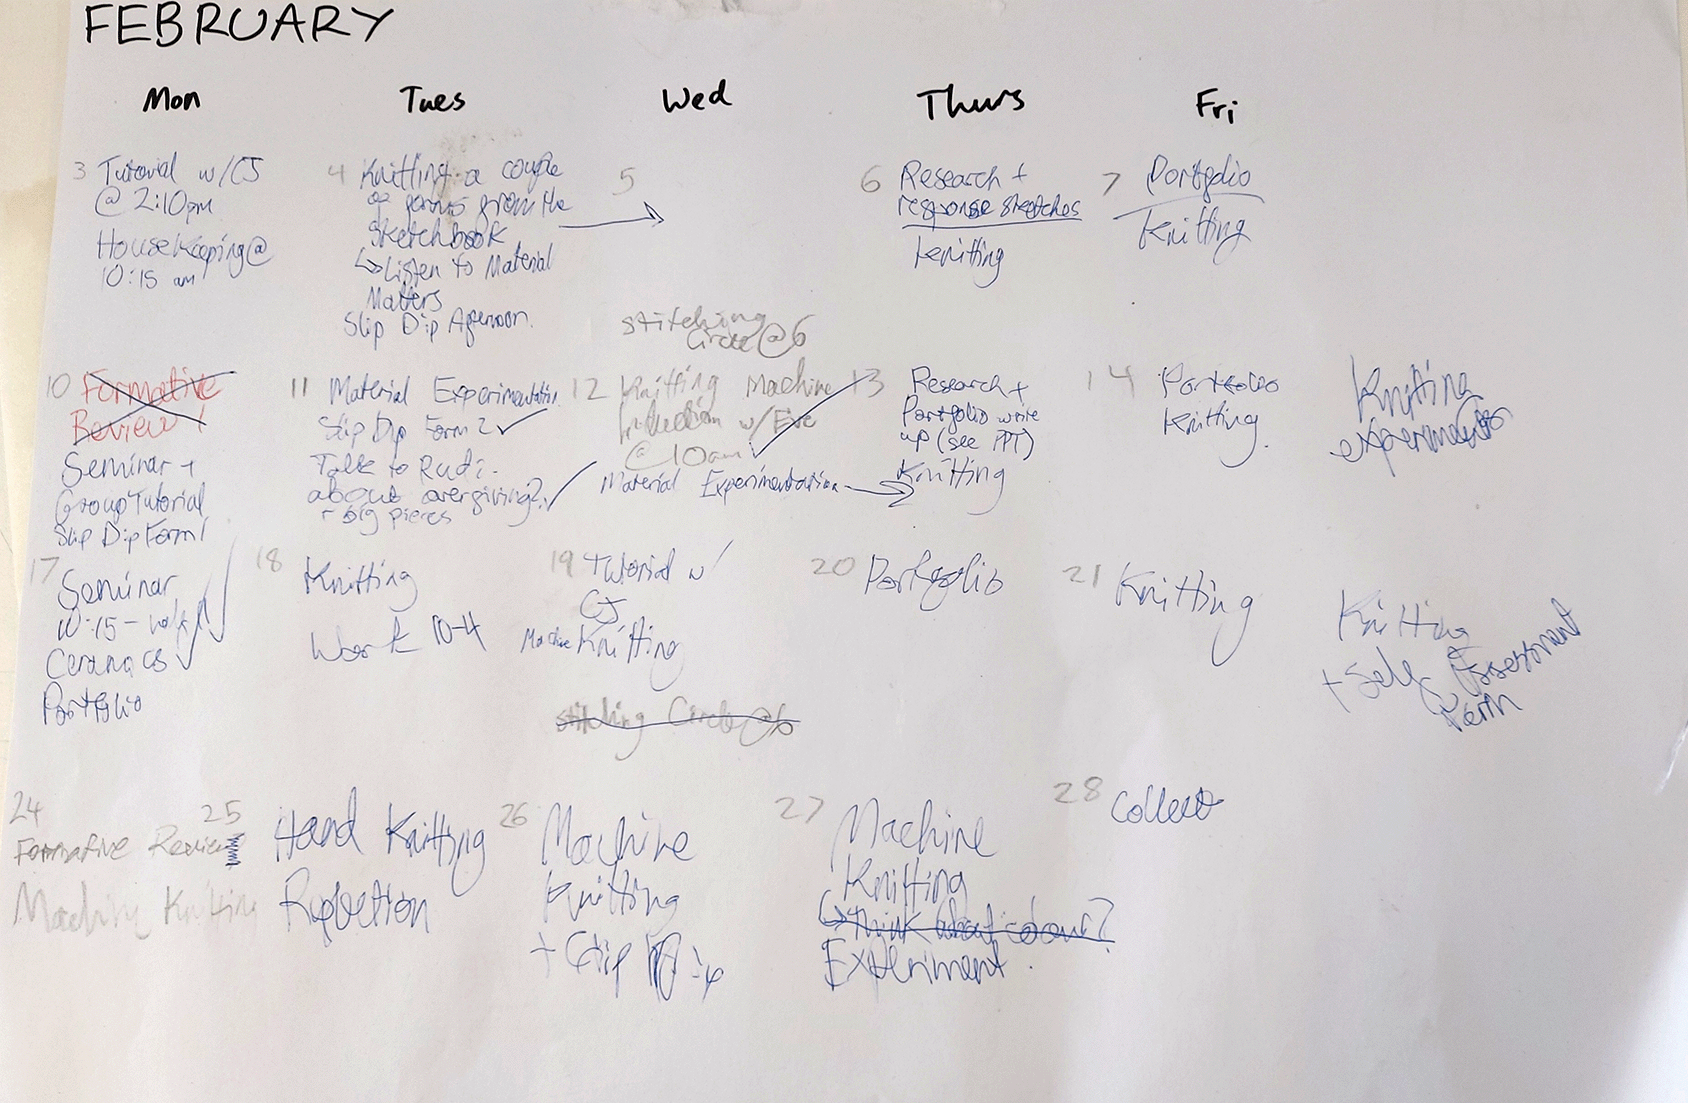 FEBRUARY
Mon Tues Wed Thurs Fri
3 Tutorial w/CJ
@ 2:10pm
Housekeeping@
10:15 am
4 Knitting a couple
of forms from the
sketchbook
↳ Listen to Material
Matters
Slip Dip Afernoon.
5
stitching
Circle@6
6 Research +
response sketches
Knitting
7 Portfolio
Knitting
10 Formative
Review!
Seminar +
Group Tutorial
Slip Dip Form 1
11 Material Experimentation
Slip Dip Form 2 ✓
Talk to Rudi
about overgiving? ✓
+ big pieces
12 Knitting Machine
Induction w/Eve
@10am ✓
Material Experimentation →
13 Research +
Portfolio write
up (see PPT)
Knitting
14 Portfolio
Knitting.
Knitting
experiments
17 Seminar
10:15 -
Ceramics ✓
Portfolio
18 Knitting
Work 10-4
19 Tutorial w/
CJ
Machine Knitting
stitching Circle @6
20 Portfolio
21 Knitting
Knitting
+ Self Assessment
24
Formative Review
Machine Knitting
25 Hand Knitting
26 Machine
Knitting
+ Slip Dip
27 Machine
Knitting
↳ think about colour?
Experiment.
28 Collect